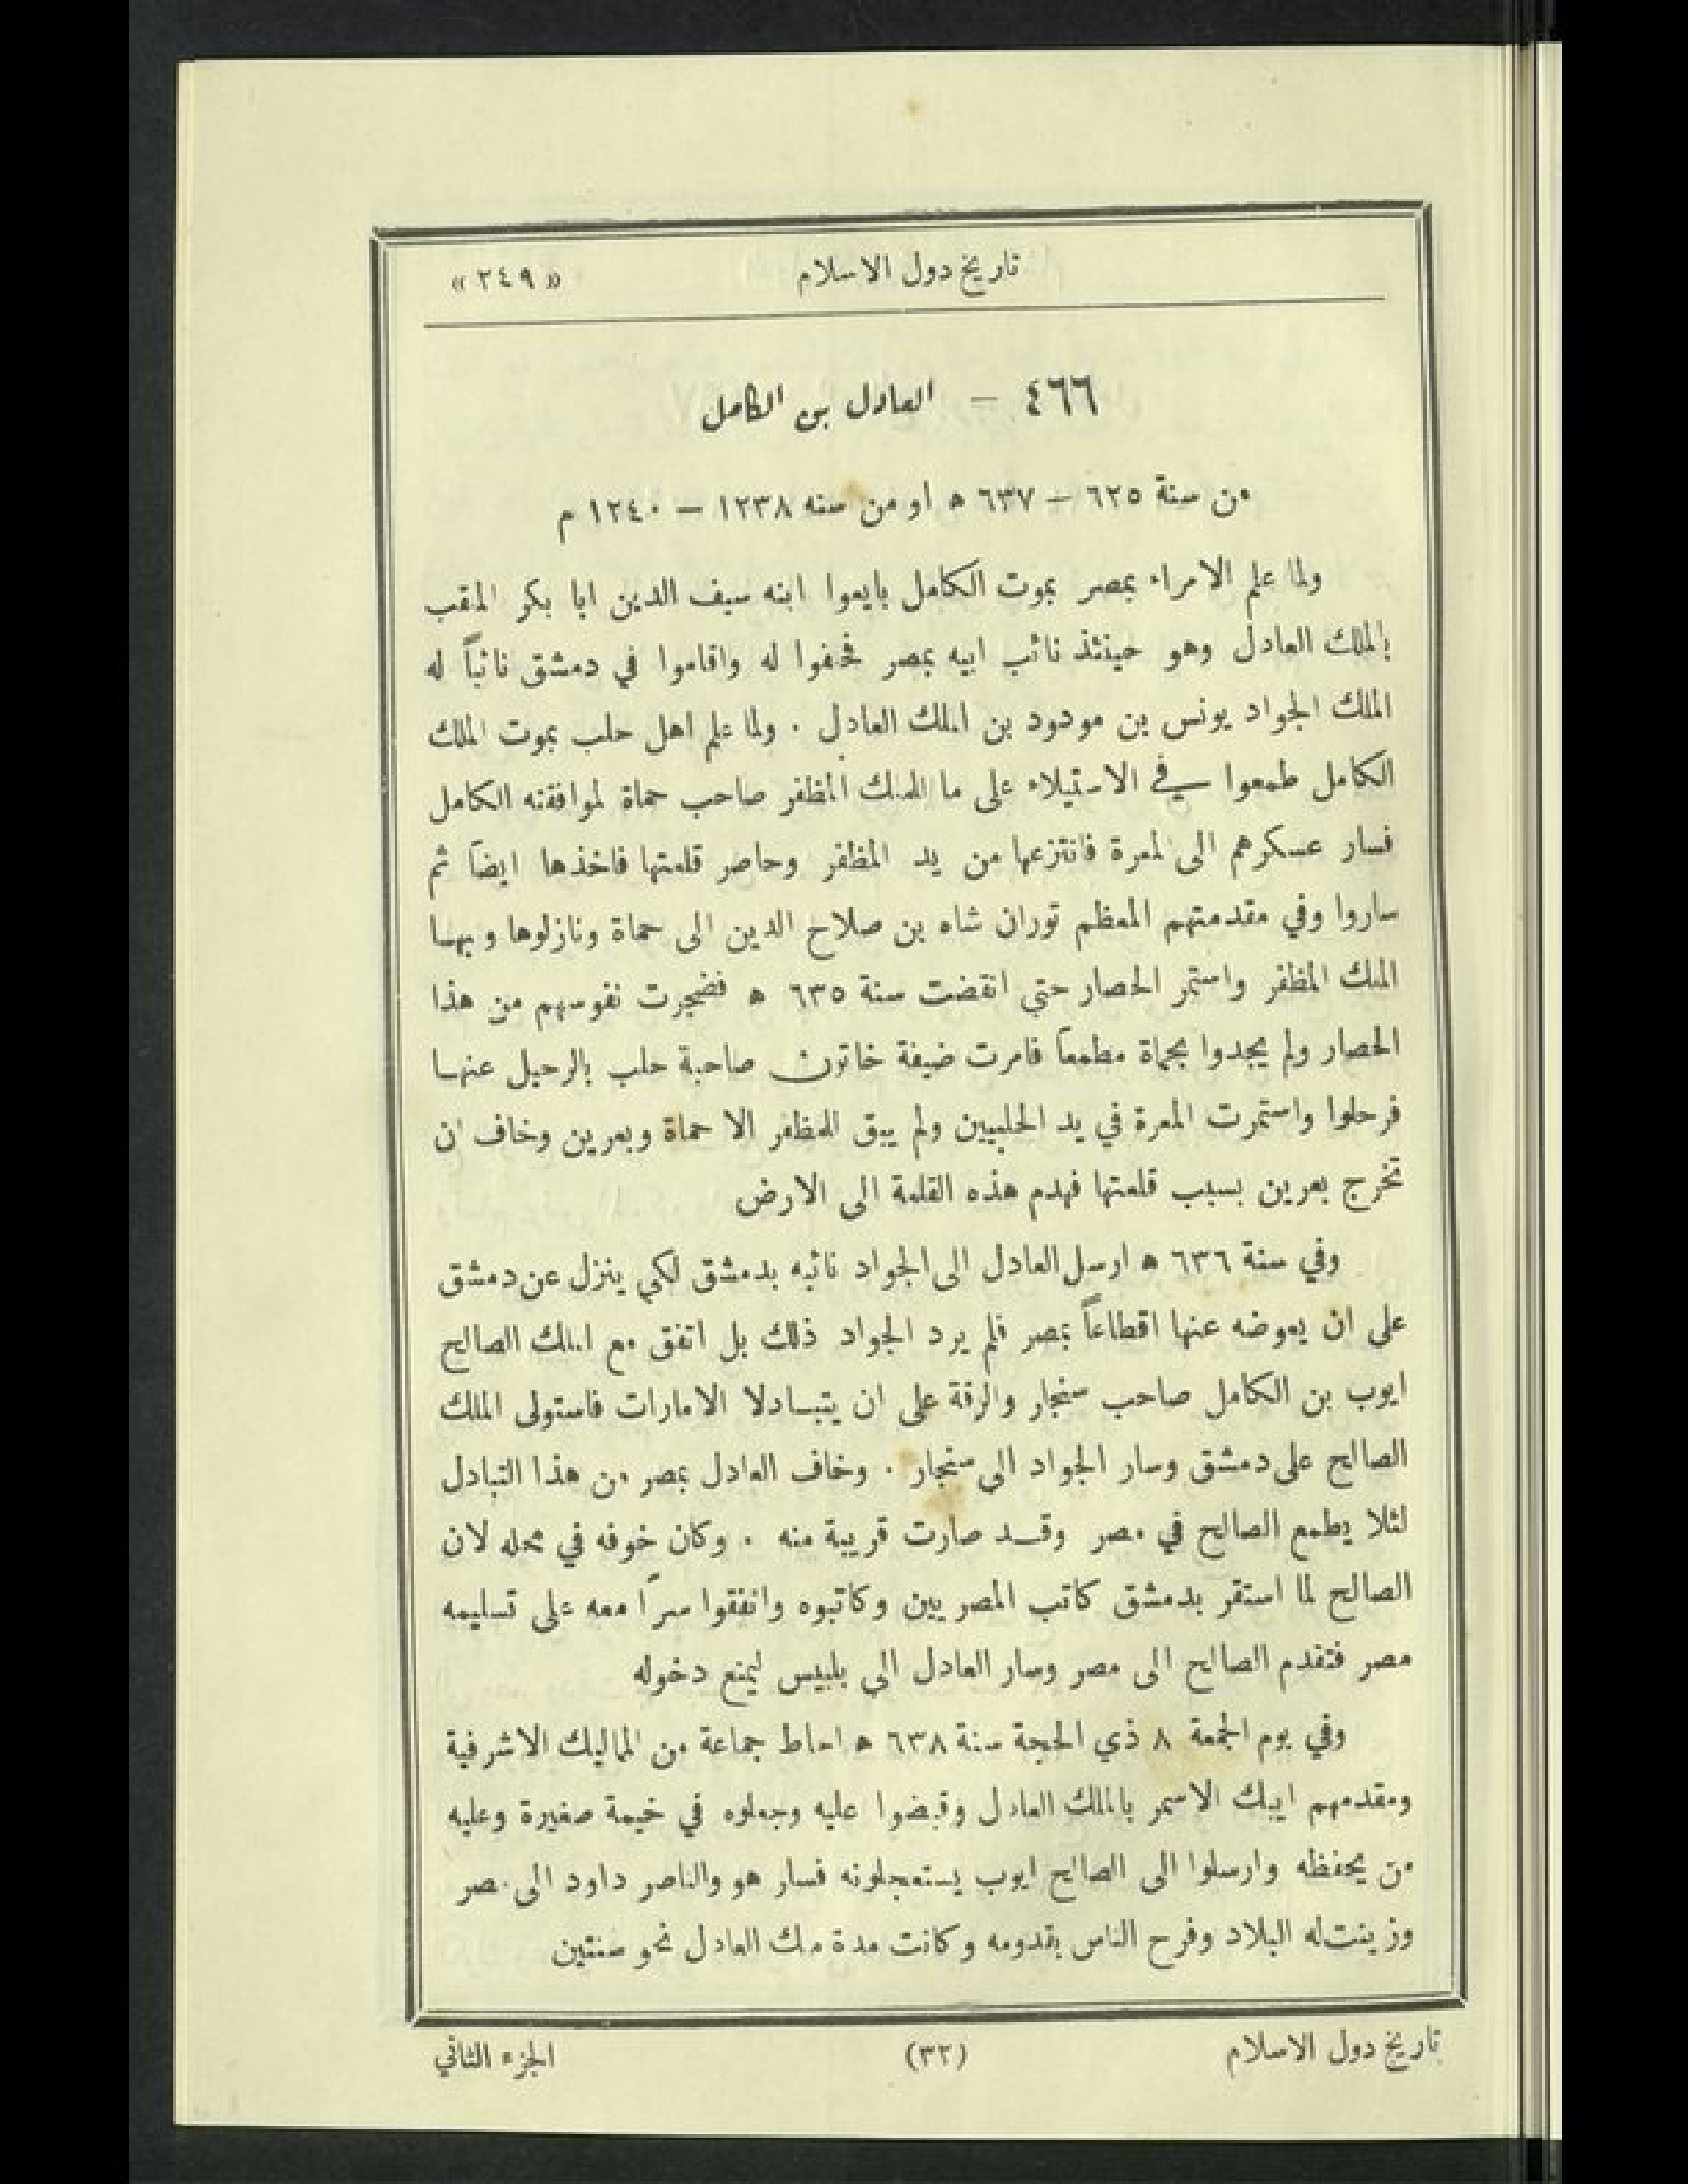 تاريخ دول الاسلام
« ٢٤٩ »
٤٦٦ — العادل بن الكامل
من سنة ٦٢٥ — ٦٣٧ ه او من سنه ١٢٣٨ — ١٢٤٠ م
ولما علم الامراء بمصر بموت الكامل بايعوا ابنه سيف الدين ابا بكر الملقب
بالملك العادل وهو حينئذ نائب ابيه بمصر فحلفوا له واقاموا في دمشق نائباً له
الملك الجواد يونس بن مودود بن الملك العادل . ولما علم اهل حلب بموت الملك
الكامل طمعوا في الاستيلاء على ما للملك المظفر صاحب حماة لموافقته الكامل
فسار عسكرهم الى المعرة فانتزعها من يد المظفر وحاصر قلعتها فاخذها ايضاً ثم
ساروا وفي مقدمتهم المعظم توران شاه بن صلاح الدين الى حماة ونازلوها وبها
الملك المظفر واستمر الحصار حتى انقضت سنة ٦٣٥ ه فضجرت نفوسهم من هذا
الحصار ولم يجدوا بحماة مطمعاً فامرت ضيفة خاتون صاحبة حلب بالرحيل عنها
فرحلوا واستمرت المعرة في يد الحلبيين ولم يبق للمظفر الا حماة وبعرين وخاف ان
تخرج بعرين بسبب قلعتها فهدم هذه القلعة الى الارض
وفي سنة ٦٣٦ ه ارسل العادل الى الجواد نائبه بدمشق لكي ينزل عن دمشق
على ان يعوضه عنها اقطاعاً بمصر فلم يرد الجواد ذلك بل اتفق مع الملك الصالح
ايوب بن الكامل صاحب سنجار والرقة على ان يتبادلا الامارات فاستولى الملك
الصالح على دمشق وسار الجواد الى سنجار . وخاف العادل بمصر من هذا التبادل
لئلا يطمع الصالح في مصر وقد صارت قريبة منه . وكان خوفه في محله لان
الصالح لما استقر بدمشق كاتب المصريين وكاتبوه واتفقوا سرًا معه على تسليمه
مصر فتقدم الصالح الى مصر وسار العادل الى بلبيس ليمنع دخوله
وفي يوم الجمعة ٨ ذي الحجة سنة ٦٣٨ ه احاط جماعة من المماليك الاشرفية
ومقدمهم ايبك الاسمر بالملك العادل وقبضوا عليه وجعلوه في خيمة صغيرة وعليه
من يحفظه وارسلوا الى الصالح ايوب يستعجلونه فسار هو والناصر داود الى مصر
وزينت له البلاد وفرح الناس بقدومه وكانت مدة ملك العادل نحو سنتين
تاريخ دول الاسلام
(٣٢)
الجزء الثاني